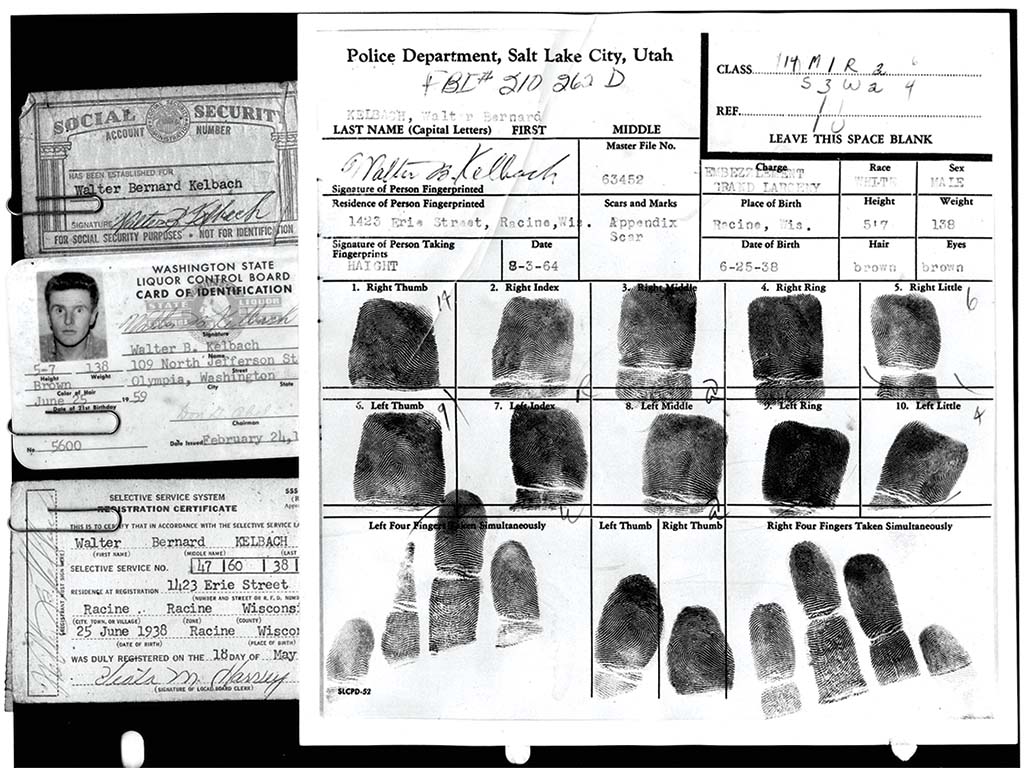 SOCIAL SECURITY
ACCOUNT NUMBER
HAS BEEN ESTABLISHED FOR
Walter Bernard Kelbach
SIGNATURE Walter B. Kelbach
FOR SOCIAL SECURITY PURPOSES • NOT FOR IDENTIFICATION
WASHINGTON STATE
LIQUOR CONTROL BOARD
CARD OF IDENTIFICATION
Walter B. Kelbach
Signature
Walter B. Kelbach
Name
109 North Jefferson St
Street
Olympia, Washington
City State
5-7 138
Height Weight
Brown
Color of Hair
June 25 1959
Date of 21st Birthday
Chairman
No 5600
Date Issued February 24,1
SELECTIVE SERVICE SYSTEM
REGISTRATION CERTIFICATE
THIS IS TO CERTIFY THAT IN ACCORDANCE WITH THE SELECTIVE SERVICE LA
Walter Bernard KELBACH
(FIRST NAME) (MIDDLE NAME) (LAST
SELECTIVE SERVICE NO. 47 60 38
1423 Erie Street
RESIDENCE AT REGISTRATION (NUMBER AND STREET OR R.F.D. NUMB
Racine Racine Wiscons
(CITY, TOWN, OR VILLAGE) (ZONE) (COUNTY)
25 June 1938 Racine Wiscon
(DATE OF BIRTH) (PLACE OF BIRTH)
WAS DULY REGISTERED ON THE 18 DAY OF May
(SIGNATURE OF LOCAL BOARD CLERK)
Police Department, Salt Lake City, Utah
FBI# 210 262 D
KELBACH, Walter Bernard
LAST NAME (Capital Letters) FIRST MIDDLE
CLASS 14 M 1 R 2 6
S 3 W 2 4
REF.
LEAVE THIS SPACE BLANK
Walter B. Kelbach
Signature of Person Fingerprinted
Master File No.
63452
Charge
EMBEZZLEMENT
GRAND LARCENY
Race
WHITE
Sex
MALE
Residence of Person Fingerprinted
1423 Erie Street, Racine, Wis.
Scars and Marks
Appendix
Scar
Place of Birth
Racine, Wis.
Height
5'7
Weight
138
Signature of Person Taking
Fingerprints
HAIGHT
Date
8-3-64
Date of Birth
6-25-38
Hair
brown
Eyes
brown
1. Right Thumb 2. Right Index 3. Right Middle 4. Right Ring 5. Right Little
6. Left Thumb 7. Left Index 8. Left Middle 9. Left Ring 10. Left Little
Left Four Fingers Taken Simultaneously Left Thumb Right Thumb Right Four Fingers Taken Simultaneously
SLCPD-52